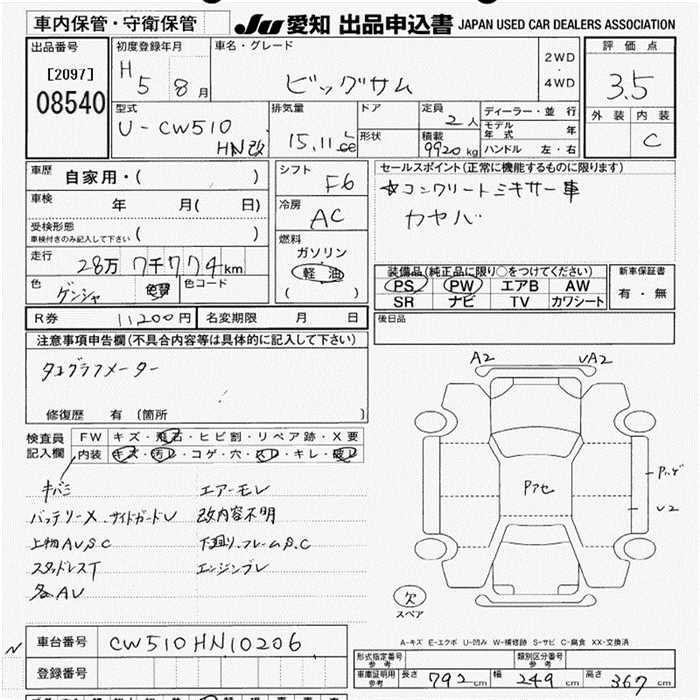 車内保管・守衛保管
JU 愛知 出品申込書 JAPAN USED CAR DEALERS ASSOCIATION
出品番号
[2097]
08540
初度登録年月
H 5 8 月
車名・グレード
ビッグサム
2WD
・
4WD
評価点
3.5
外装 内装
C
型式
U-CW510
HN改
排気量
15.11 L cc
ドア
形状
定員
2 人
積載
9920 kg
ディーラー・並行
モデル年式 年
ハンドル 左・右
車歴 自家用・( )
車検 年 月( 日)
受検形態
車検付きのみ記入して下さい ( )
走行 28万 7千774 km
色 ゲンシャ 色替 色コード
シフト
F6
冷房
AC
燃料
ガソリン
軽油
( )
セールスポイント(正常に機能するものに限ります)
☆コンクリートミキサー車
カヤバ
装備品(純正品に限り○をつけてください)
PS PW エアB AW
SR ナビ TV カワシート
新車保証書
有・無
R券 11,200円 名変期限 月 日
後日品
注意事項申告欄(不具合内容等は具体的に記入して下さい)
タコグラフメーター
修復歴 有 (箇所 )
検査員
記入欄
FW キズ・飛石・ヒビ割・リペア跡・X要
内装 キズ・汚レ・コゲ・穴・スレ・キレ・破レ
キバミ エアーモレ
バッテリーX サイドガードU 改内容不明
上物AUSC 下廻り.フレームS.C
スタッドレスT エンジンブレ
各AU
A2 UA2
Pアセ
Pハゲ
U2
欠
スペア
A-キズ E-エクボ U-凹み W-補修跡 S-サビ C-腐食 XX-交換済
N 車台番号 CW510HN10206
登録番号
形式指定番号
参考
類別区分番号
参考
車庫証明用
参考
長さ 792 cm 幅 249 cm 高さ 367 cm